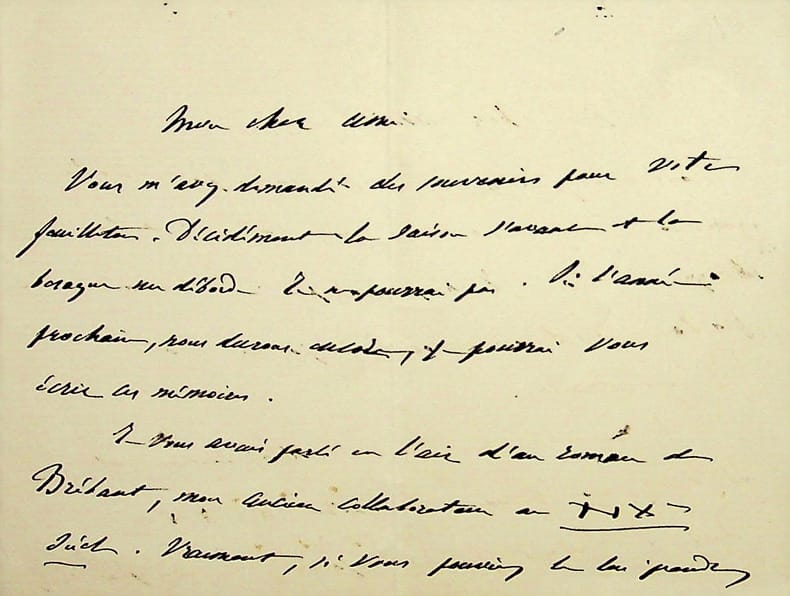 Mon cher ami
Vous m'avez demandé des souvenirs pour votre
feuilleton. Décidément la saison s'avance & la
besogne me déborde Je ne pourrai pas. Si l'année
prochaine, nous durons encore, je pourrai vous
écrire ces mémoires.
Je vous avais parlé en l'air d'un roman de
Brébant, mon ancien collaborateur au XIXe
Siècle. Vraiment, si vous pouviez le lui prendre